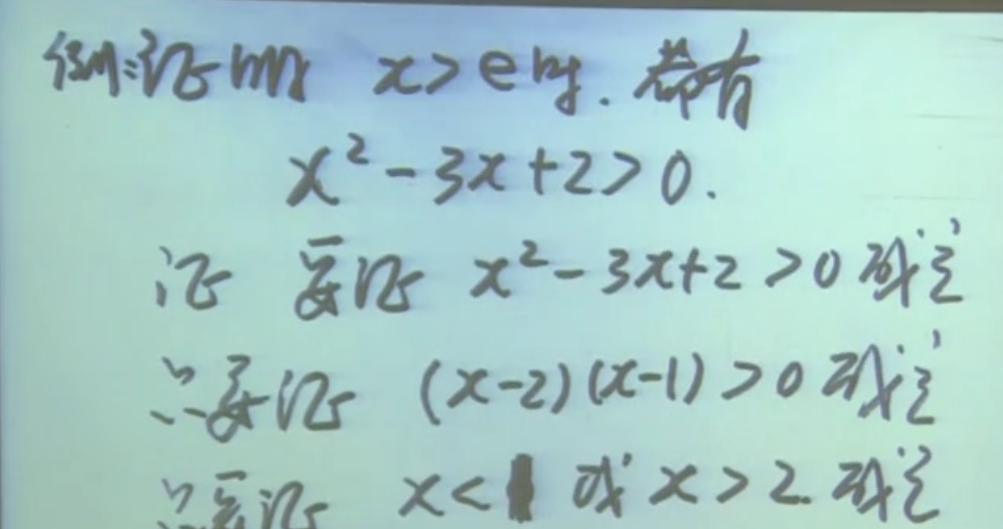 例:证明 x>e时.都有
x²-3x+2>0.
证 要证 x²-3x+2>0 成立
只要证 (x-2)(x-1)>0 成立
只要证 x<1 或 x>2.成立